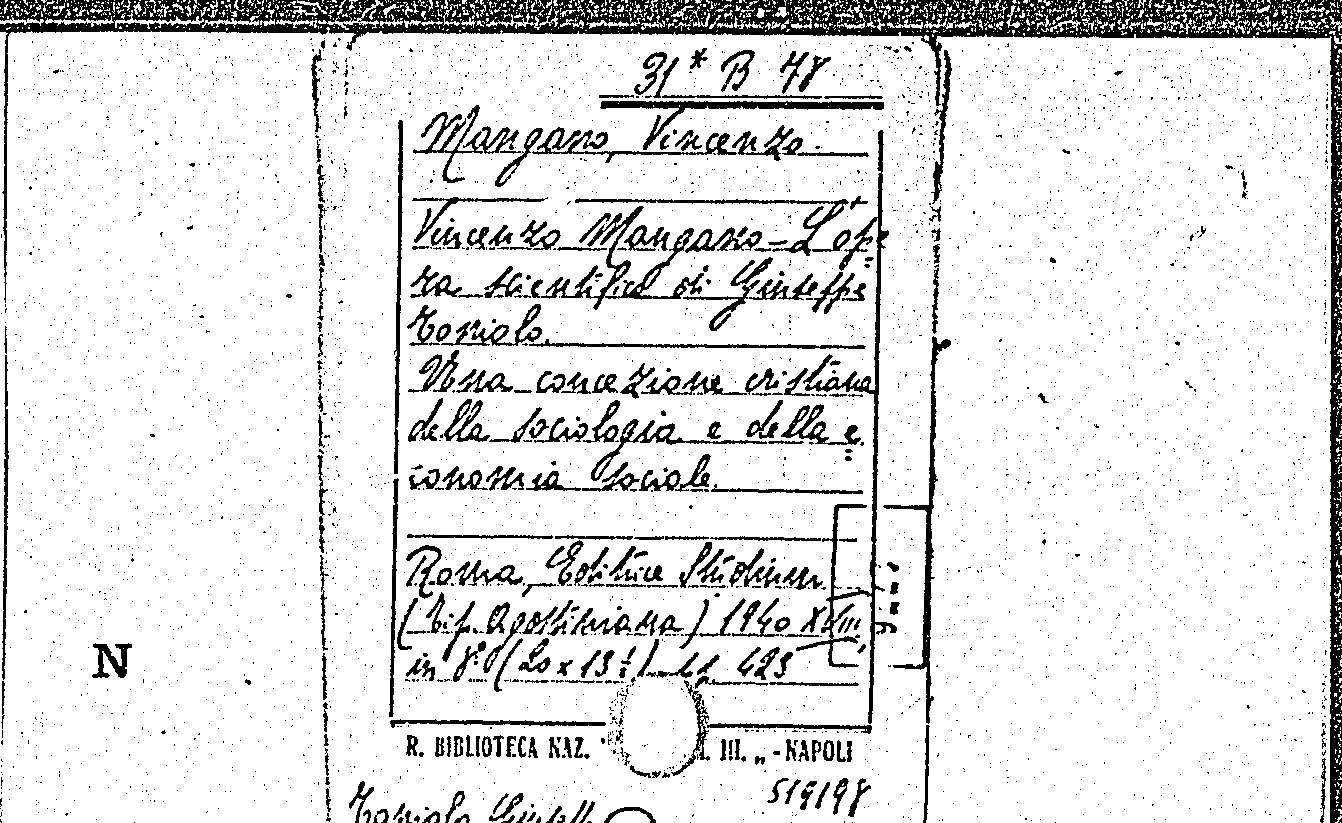 31* B 48
Mangano, Vincenzo.
Vincenzo Mangano - L'ope
ra scientifica di Giuseppe
Toniolo.
Una concezione cristiana
della sociologia e della e
conomia sociale.
Roma, Editrice Studium
(Tip. Agostiniana) 1940 XVIII,
in 8° (20 x 13 ½) 423
N
R. BIBLIOTECA NAZ. " . III. „ - NAPOLI
519198
Toniolo Giusepp